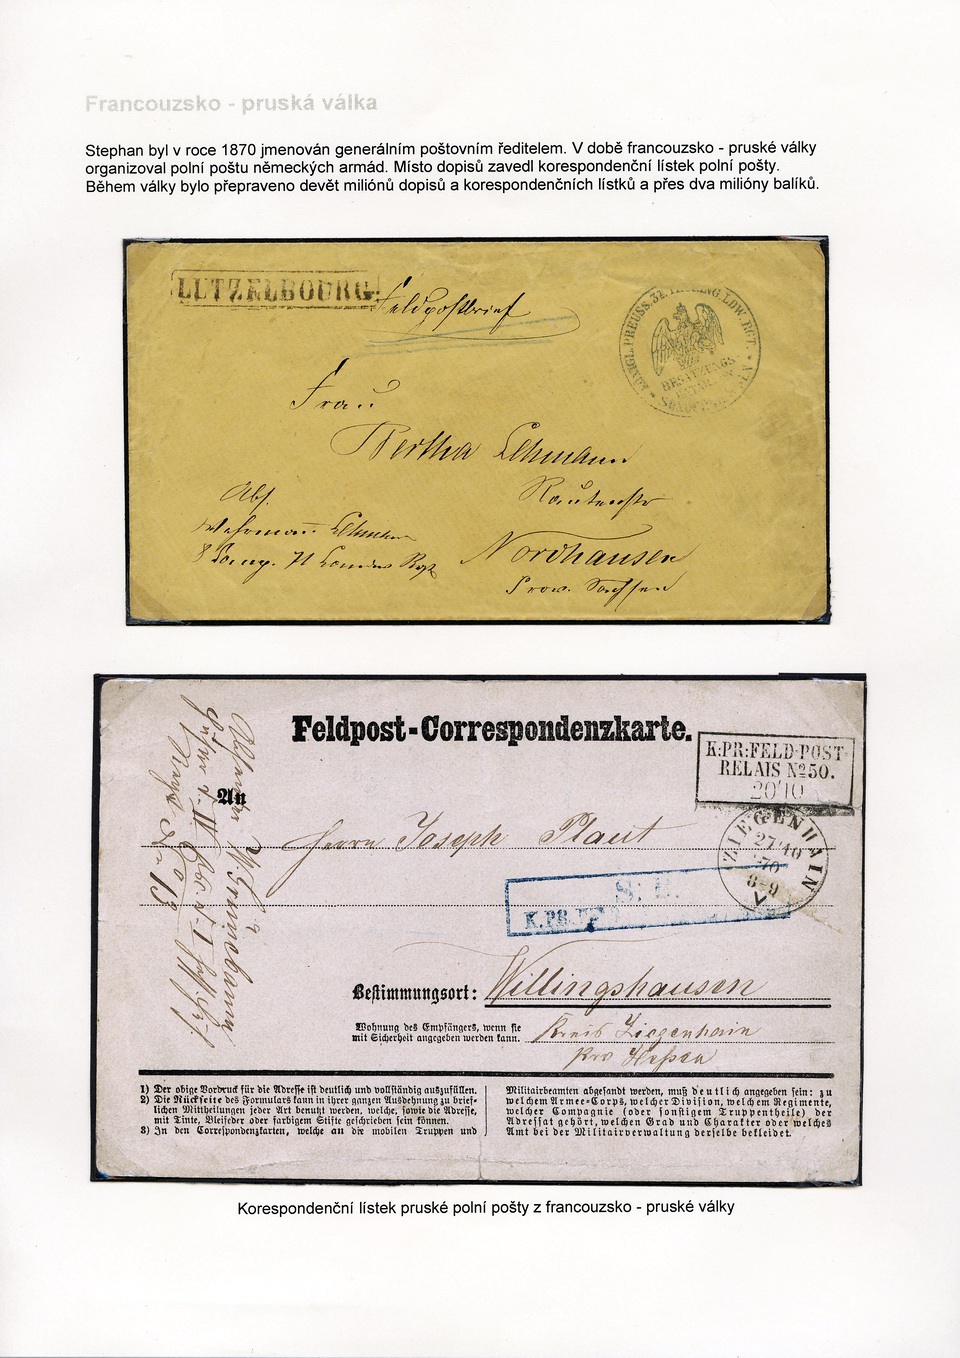 Francouzsko - pruská válka
Stephan byl v roce 1870 jmenován generálním poštovním ředitelem. V době francouzsko - pruské války
organizoval polní poštu německých armád. Místo dopisů zavedl korespondenční lístek polní pošty.
Během války bylo přepraveno devět miliónů dopisů a korespondenčních lístků a přes dva milióny balíků.
LUTZELBOURG
Feldpostbrief
KÖNIGL. PREUSS. 31. LDW. RGT.
BESATZUNGS
Frau
Bertha Lehmann
Rautenstr
Abs.
Wehrmann Lehmann
Nordhausen
8 Comp. 71
Prov. Sachsen
Feldpost-Correspondenzkarte.
K:PR:FELD-POST-
RELAIS No 50.
20 10
An
Herrn Joseph Plaut
ZIEGENHAIN
27 10
70
8-9
S. B.
K.PR.
Bestimmungsort: Willingshausen
Wohnung des Empfängers, wenn sie
mit Sicherheit angegeben werden kann.
Kreis Ziegenhain
Prv Hessen
1) Der obige Vordruck für die Adresse ist deutlich und vollständig auszufüllen.
2) Die Rückseite des Formulars kann in ihrer ganzen Ausdehnung zu brief-
lichen Mittheilungen jeder Art benutzt werden, welche, sowie die Adresse,
mit Tinte, Bleifeder oder farbigem Stifte geschrieben sein können.
3) In den Correspondenzkarten, welche an die mobilen Truppen und
Militairbeamten abgesandt werden, muß deutlich angegeben sein: zu
welchem Armee-Corps, welcher Division, welchem Regimente,
welcher Compagnie (oder sonstigem Truppentheile) der
Adressat gehört, welchen Grad und Charakter oder welches
Amt bei der Militairverwaltung derselbe bekleidet.
Korespondenční lístek pruské polní pošty z francouzsko - pruské války